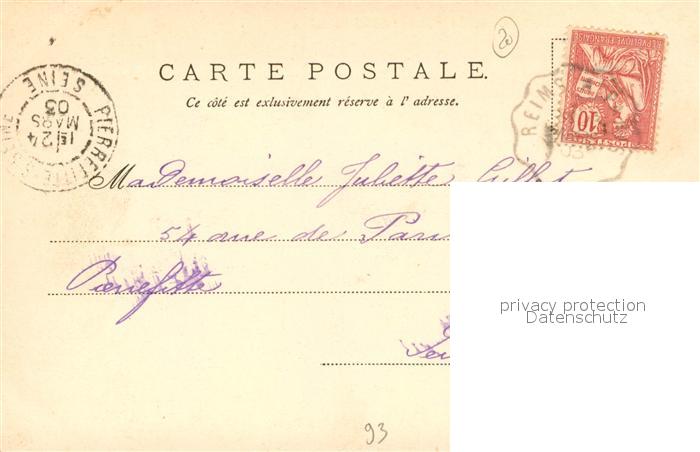 20
CARTE POSTALE.
Ce côté est exclusivement réservé à l'adresse.
REPUBLIQUE FRANÇAISE
10
POSTES
REIMS
PIERREFITTE SEINE
1E
24
MARS
03
Mademoiselle Juliette
54 rue de Paris
Pierrefitte
privacy protection
Datenschutz
93